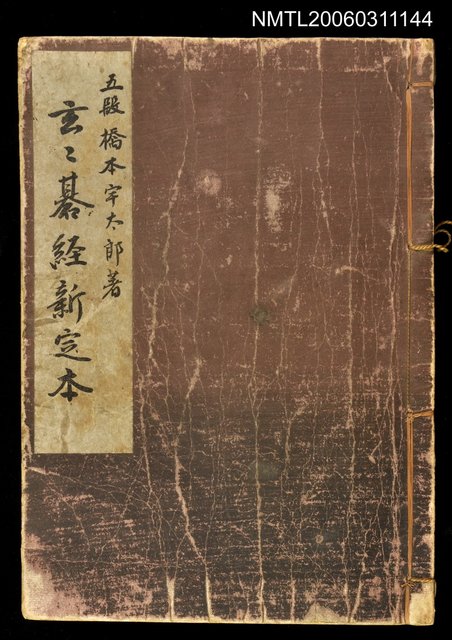 NMTL20060311144
五段橋本宇太郎著
玄〻碁経新定本